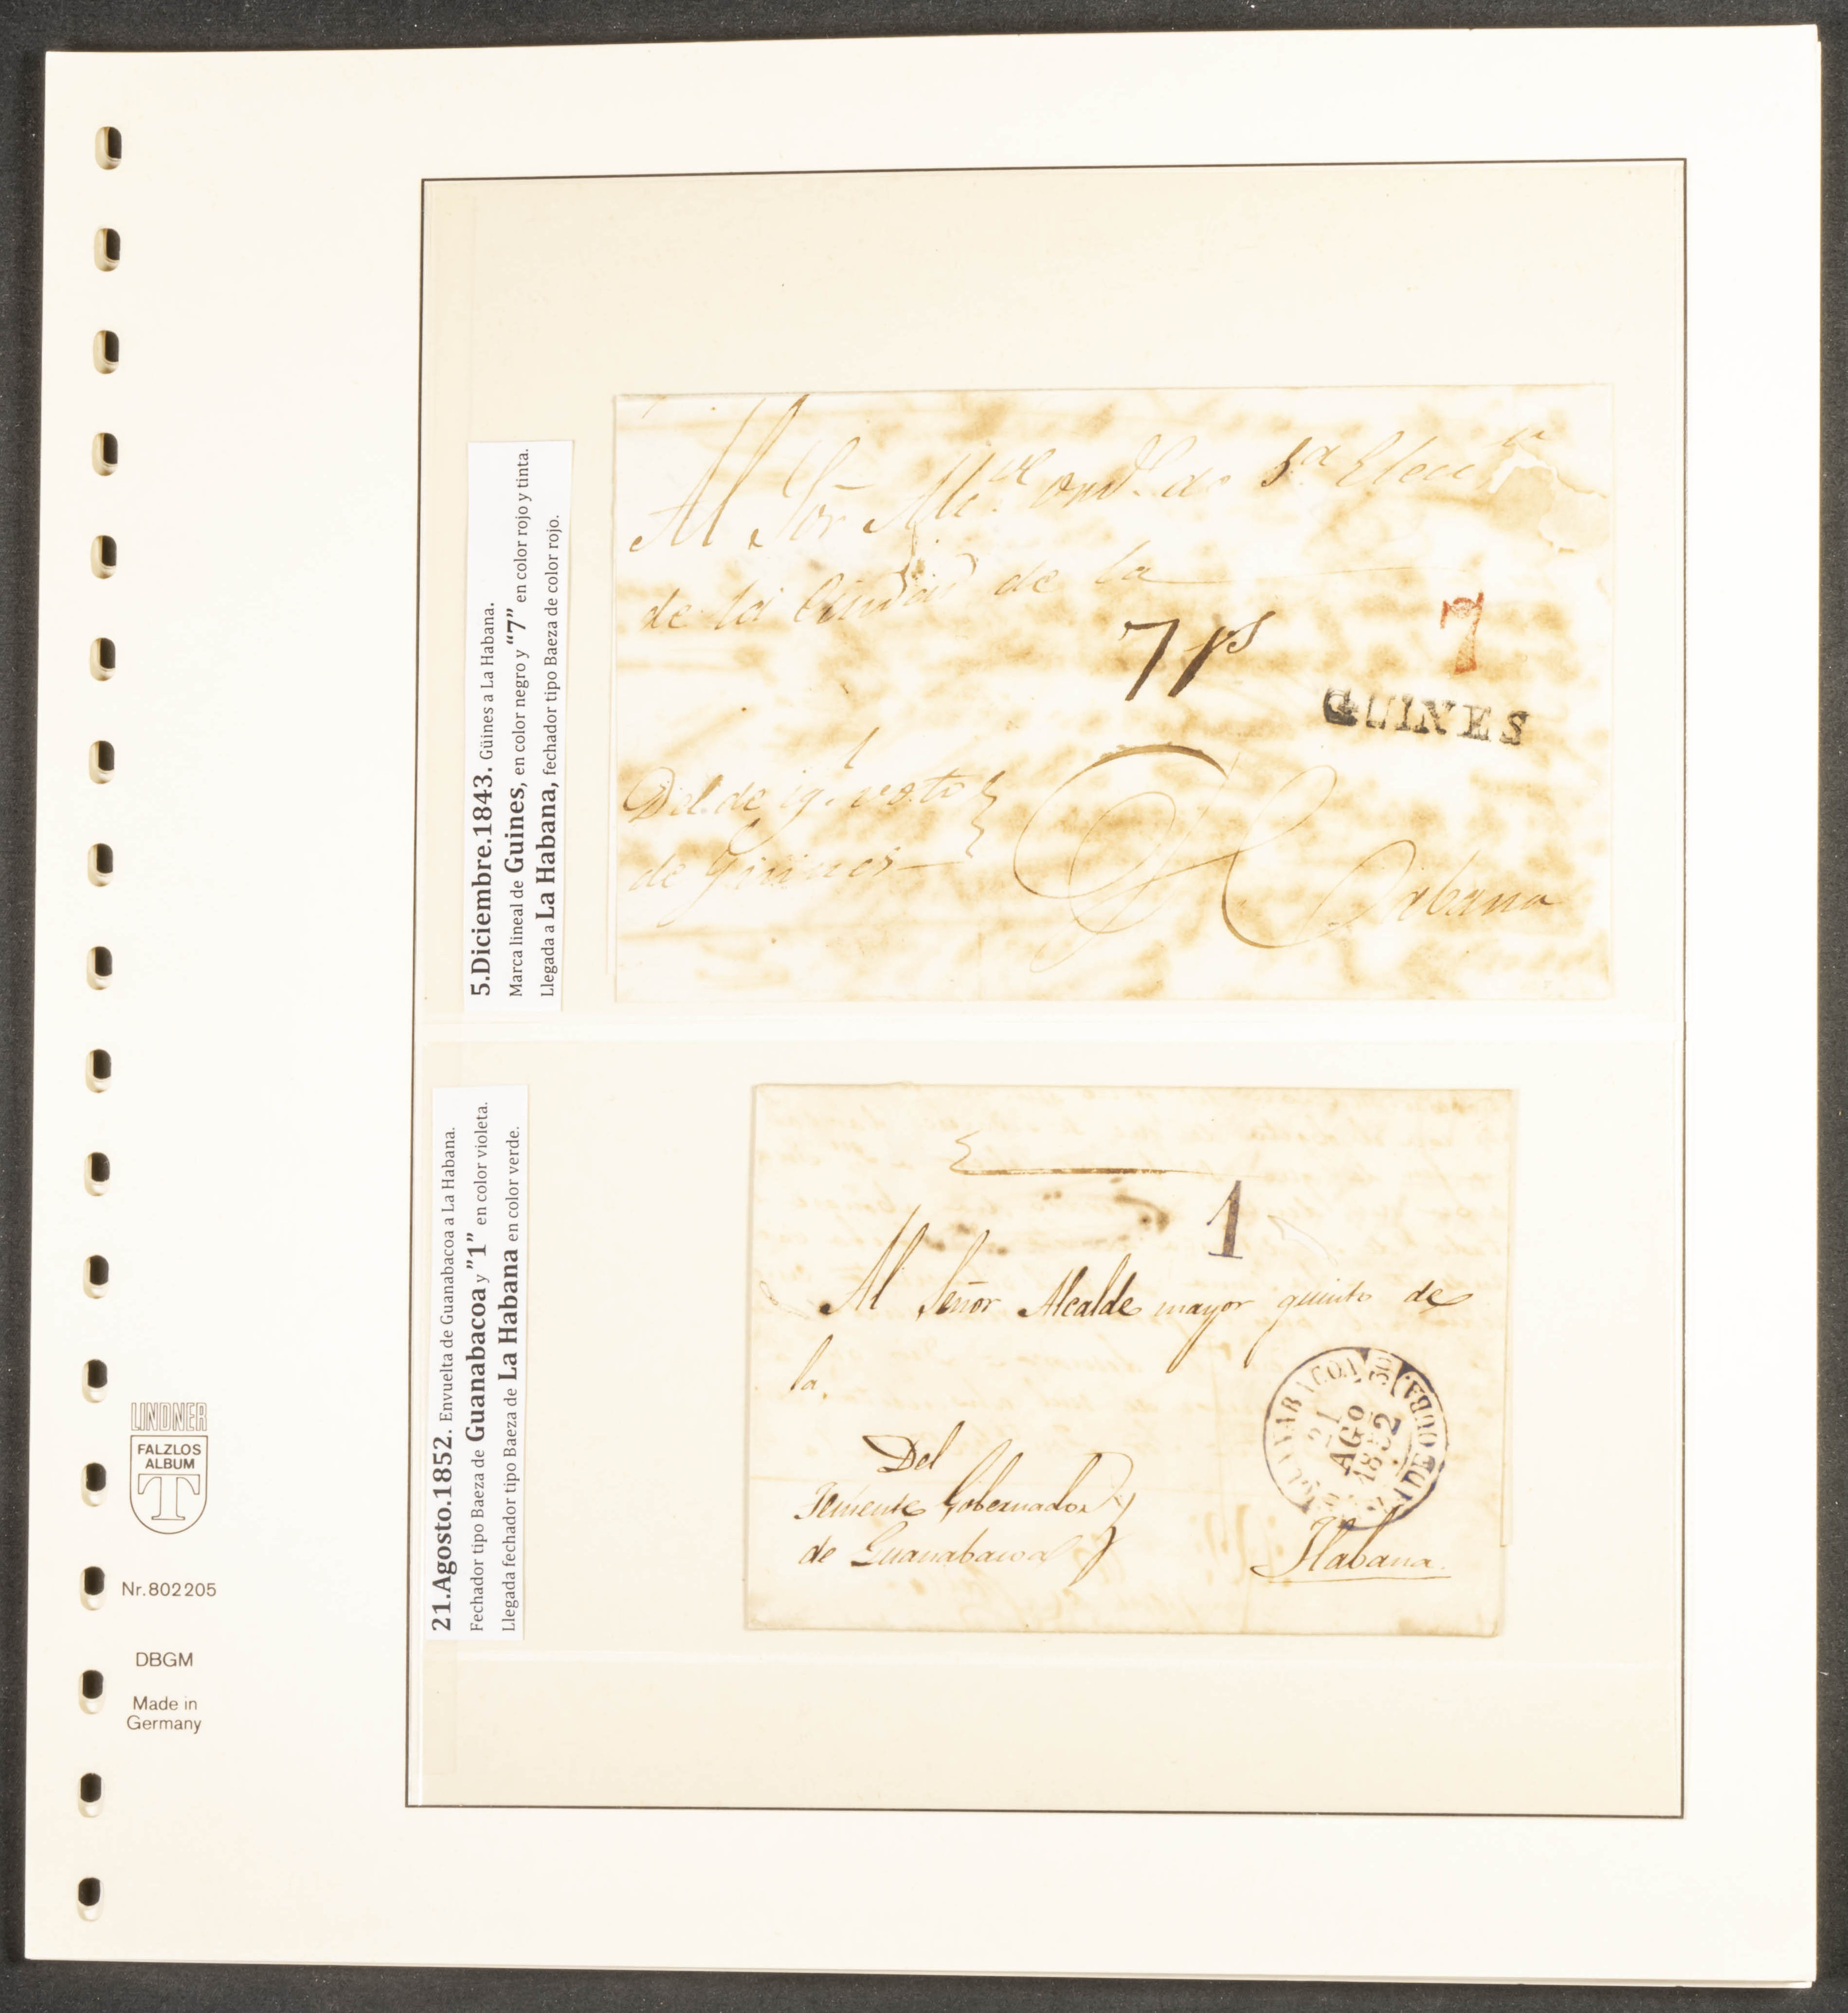 5.Diciembre.1843. Güines a La Habana.
Marca lineal de Guines, en color negro y “7” en color rojo y tinta.
Llegada a La Habana, fechador tipo Baeza de color rojo.
Al Sor Alce ord. de 3a Elecn
de la Ciudad de la
7 rs
7
GUINES
Del de igl voto
de Guines
Habana
21.Agosto.1852. Envuelta de Guanabacoa a La Habana.
Fechador tipo Baeza de Guanabacoa y ”1” en color violeta.
Llegada fechador tipo Baeza de La Habana en color verde.
1
Al Señor Alcalde mayor quinto de
la
GUANABACOA
21
AGO
1852
YSLA DE CUBA
Del
Teniente Gobernador
de Guanabacoa
Habana.
LINDNER
FALZLOS
ALBUM
T
Nr. 802 205
DBGM
Made in
Germany